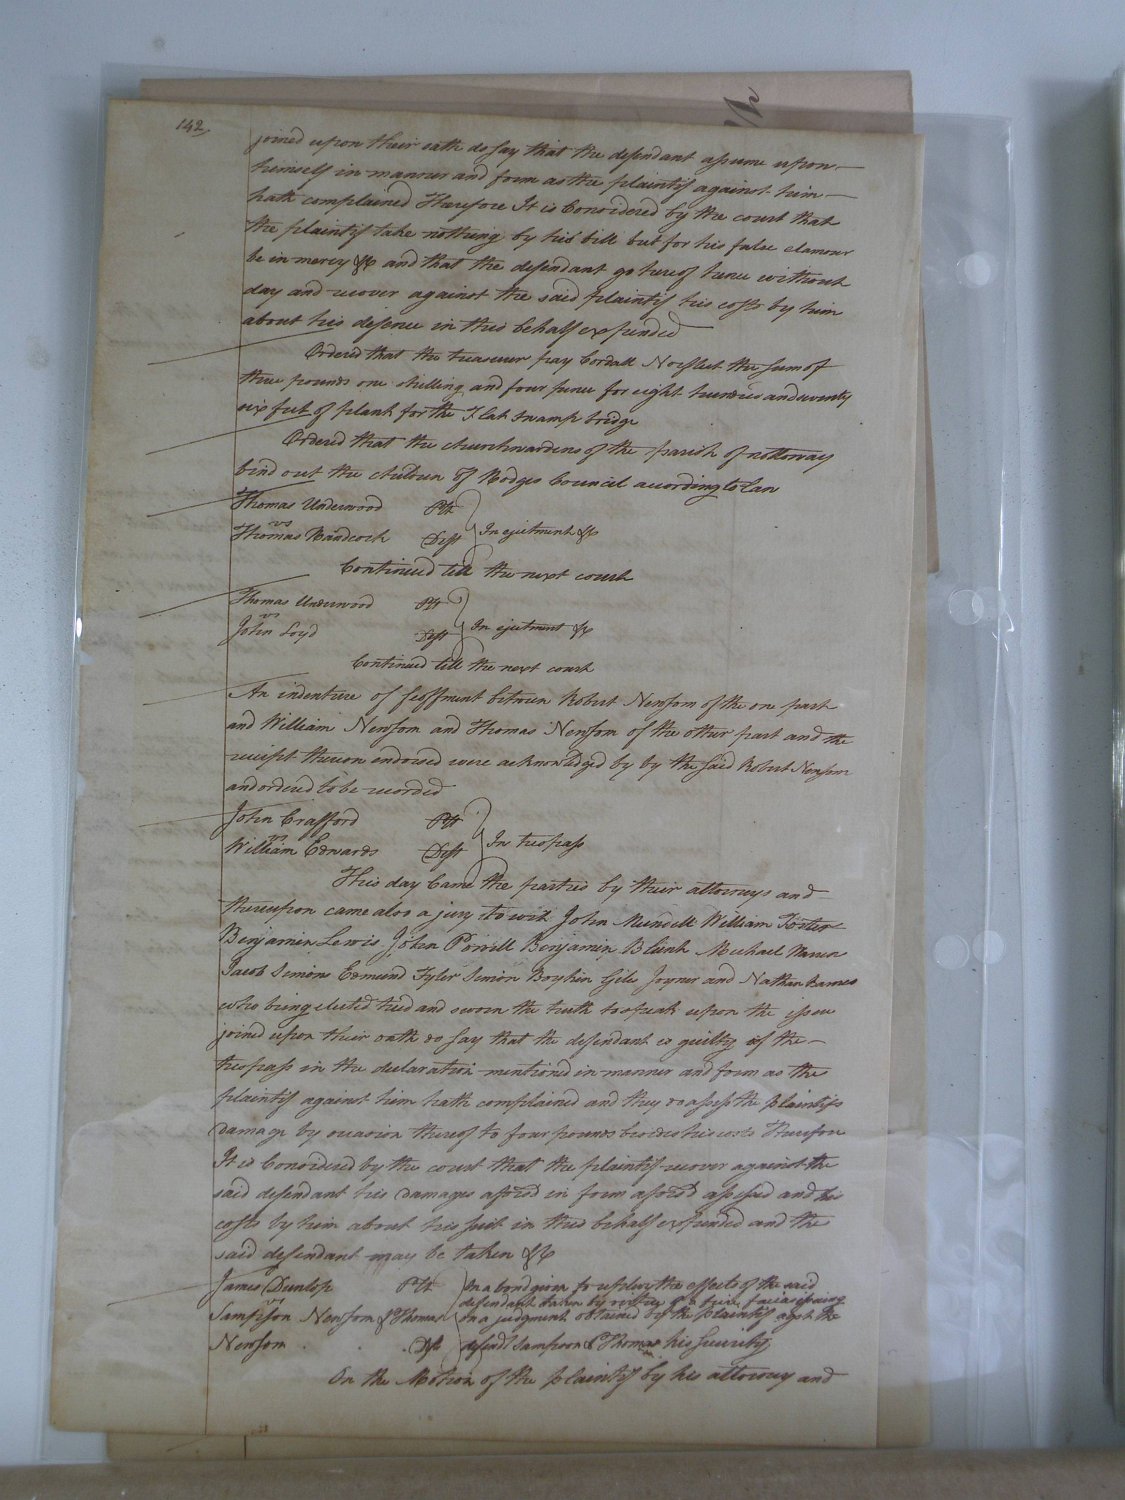 142
joined upon their oath do say that the defendant assume upon
himself in manner and form as the plaintif against him
hath complained Therefore It is Considered by the court that
the plaintif take nothing by his bill but for his false clamour
be in mercy &c and that the defendant go hereof hence without
day and recover against the said plaintif his costs by him
about his defence in this behalf expended
Ordered that the treasurer pay Cordall Norfleet the sum of
three pounds one shilling and four pence for eight hundred and seventy
six feet of plank for the Flat swamp bridge
Ordered that the churchwardens of the parish of nottoway
bind out the children of Hodges Council according to Law
Thomas Underwood Plt
vs
Thomas Handcock Deft In ejectment &c
Continued till the next court
Thomas Underwood Plt
vs
John Loyd Deft In ejectment &c
Continued till the next court
An indenture of feoffment between Robert Newsom of the one part
and William Newsom and Thomas Newsom of the other part and the
receipt thereon endorsed were acknowledged by by the said Robert Newsom
and ordered to be recorded
John Crafford Plt
vs
William Edwards Deft In trespass
This day Came the parties by their attorneys and
thereupon came also a jury to wit John Mundell William Foster
Benjamin Lewis John Powell Benjamin Blunt Michael Warren
Jacob Simons Edmund Tyler Simon Boykin Giles Joyner and Nathan Barnes
who being elected tried and sworn the truth to speak upon the issue
joined upon their oath do say that the defendant is guilty of the
trespass in the declaration mentioned in manner and form as the
plaintif against him hath complained and they do assess the plaintifs
damage by occasion thereof to four pounds besides his costs Therefore
It is Considered by the court that the plaintif recover against the
said defendant his damages aforsd in form aforsd assessed and his
costs by him about his suit in this behalf expended and the
said defendant may be taken &c
James Dunlop Plt In a bond given for the effects of the said
vs defendant taken by virtue of a fieri facias issuing
Sampson Newsom & Thomas on a judgment obtained by the plaintif agst the
Newsom Deft defendt Sampson & Thomas his security
On the Motion of the plaintif by his attorney and